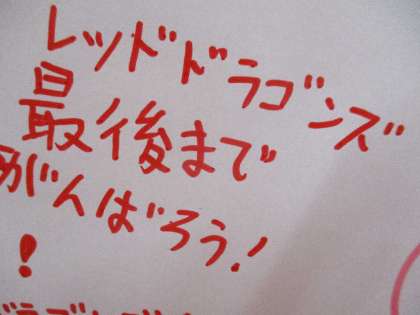 レッドドラゴンズ
最後まで
がんばろう!
!